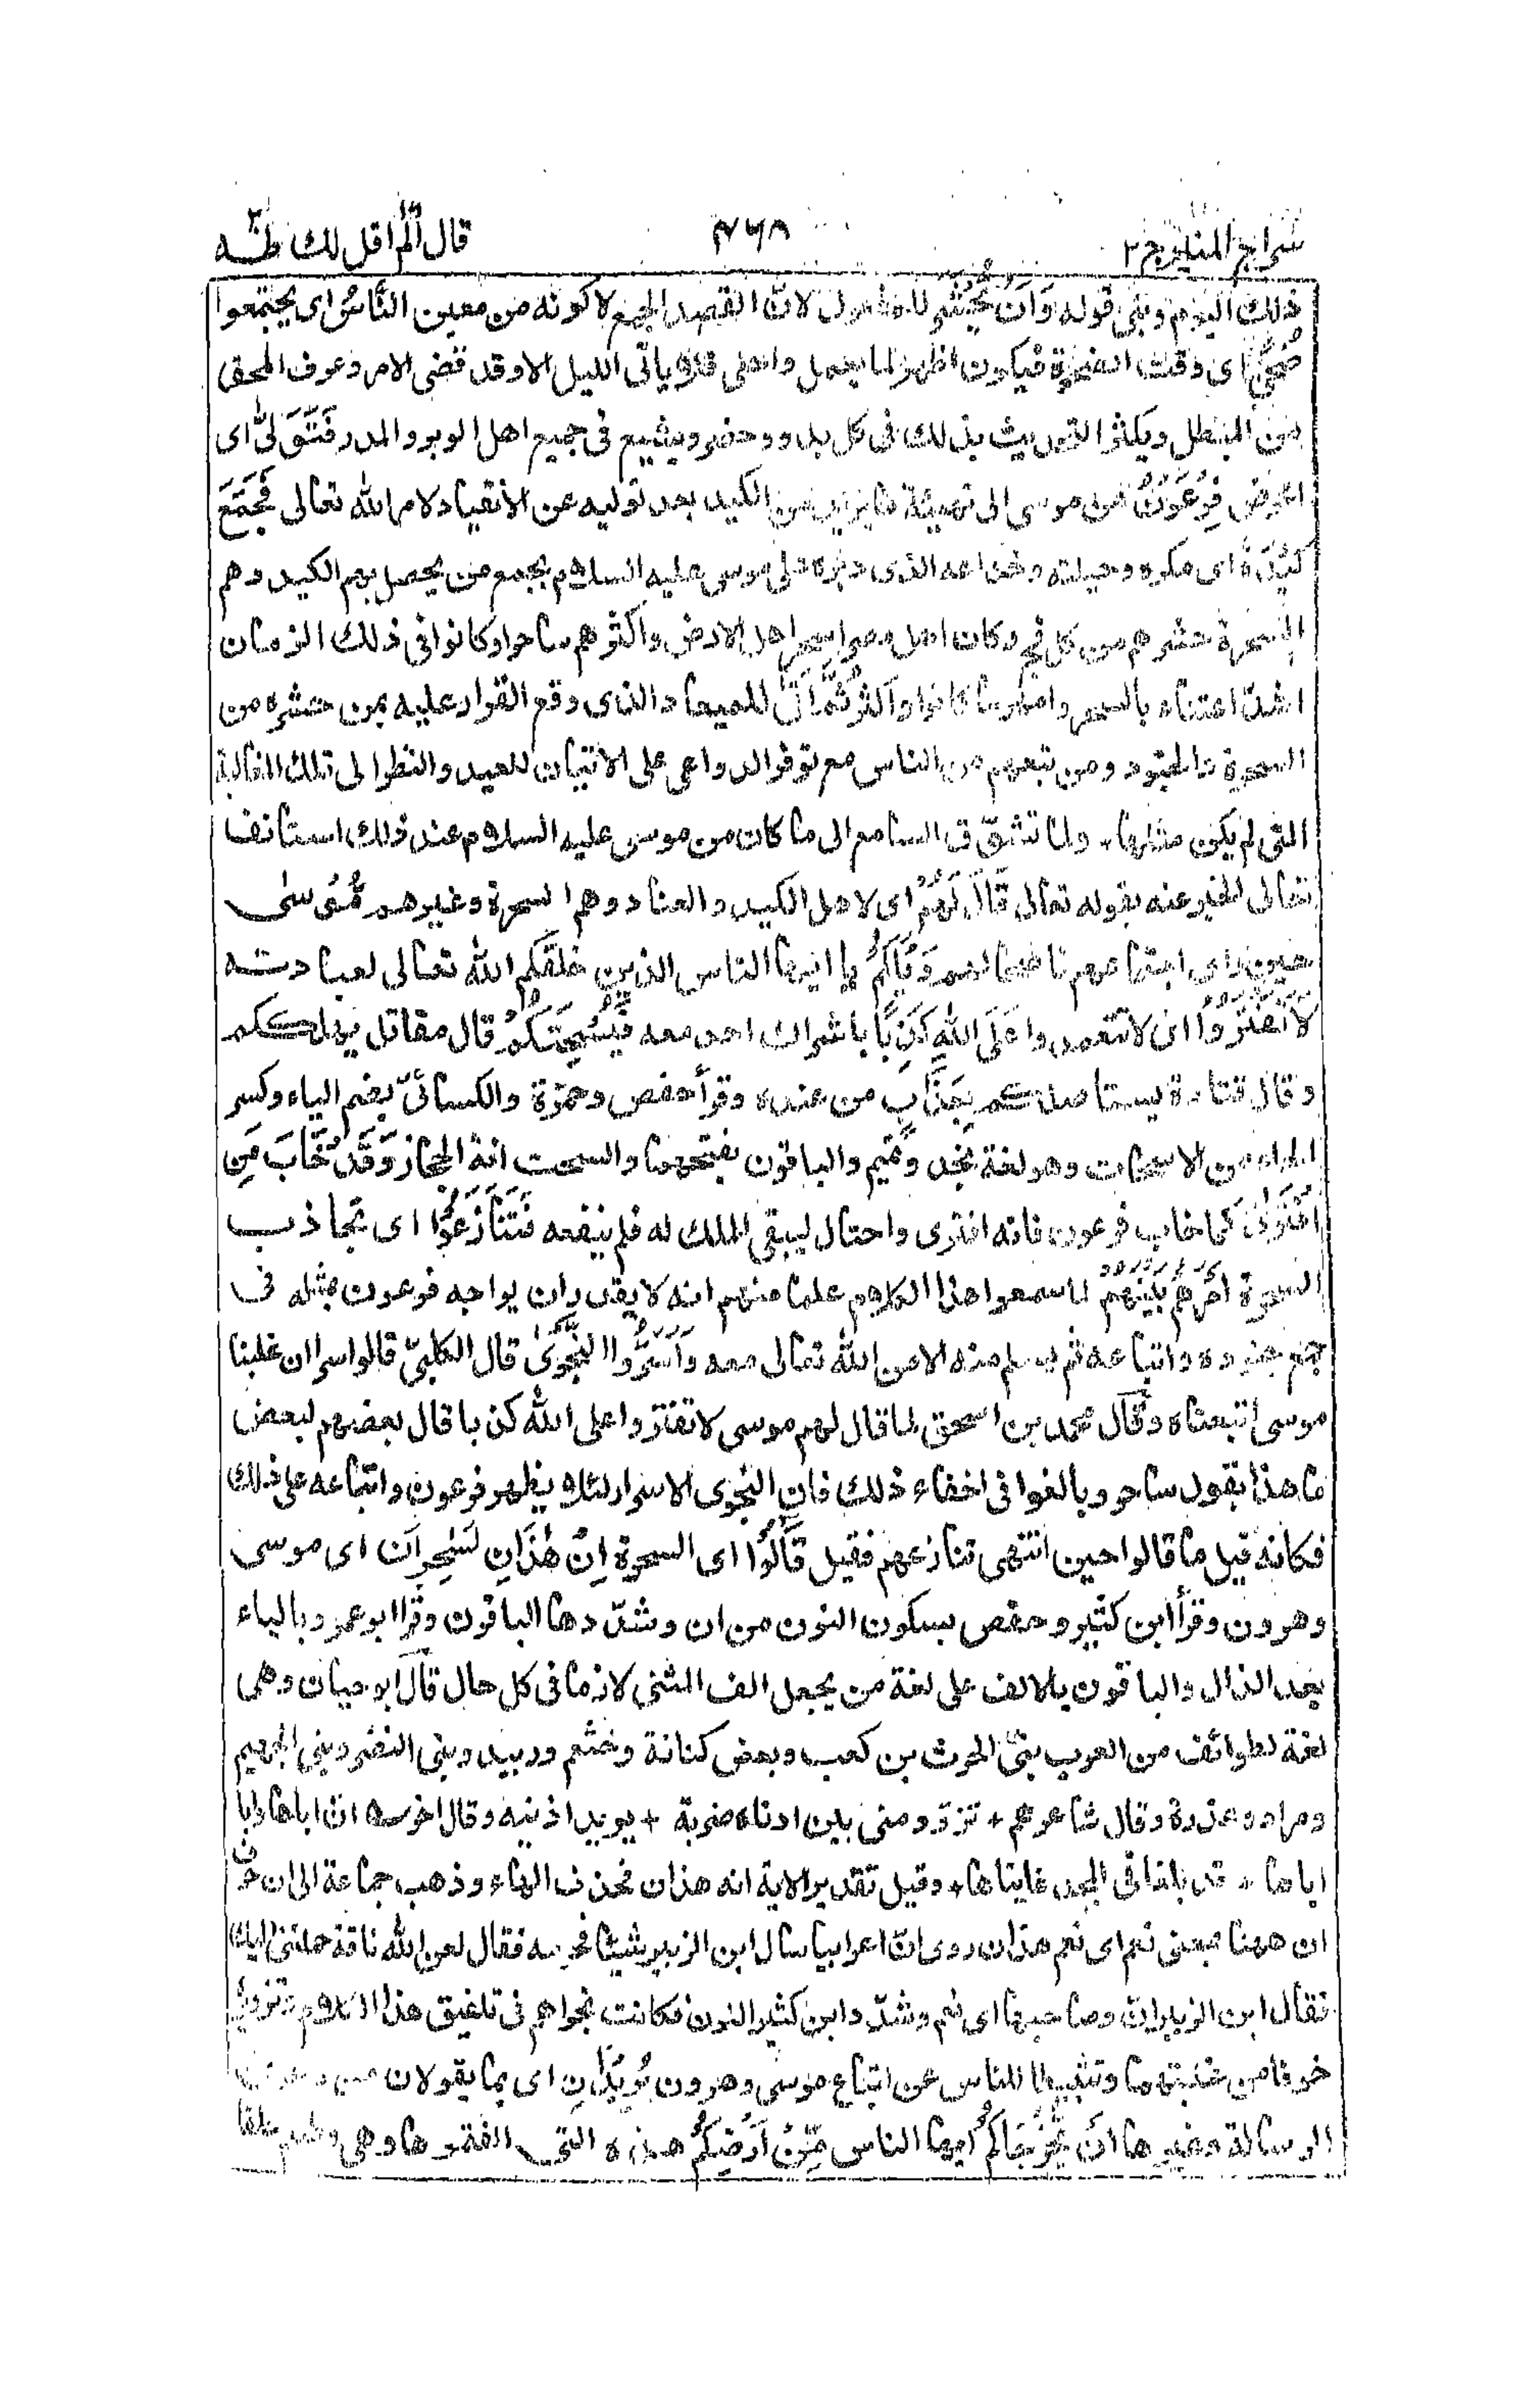 سراج المنير ج٢ ٤٦٨ قال ألم اقل لك طه
ذلك اليوم وبنى قوله وَاَنْ يُّحْشَرَ للمفعول لانّ القصد الجمع لا كونه من معين النَّاسُ اى يجتمعوا
ضُحًى اى وقت الضحوة فيكون اظهر لما يعمل واجلى فلا ياتى الليل الا وقد قضى الامر وعرف المحق
من المبطل ويكثر التحديث بذلك فى كل بدو وحضر ويشيع فى جميع اهل الوبر والمدر فَتَوَلّٰى اى
اعرض فِرْعَوْنُ عن موسى الى تهيئة ما يريد من الكيد بعد توليه عن الانقياد لامر الله تعالى فَجَمَعَ
كَيْدَهٗ اى مكره وحيلته وخداعه الذى دبره على موسى عليه السلام بجمع من يحصل بهم الكيد وهم
السحرة حشرهم من كل فج وكان اهل مصر اسحر اهل الارض واكثرهم ساحرا وكانوا فى ذلك الزمان
اشدّ اعتناء بالسحر وامهر ما كانوا واكثر ثُمَّ اَتٰى للميعاد الذى وقع القرار عليه بمن حشره من
السحرة والجنود ومن تبعهم من الناس مع توفر الدواعى على الاتيان للعيد والنظر الى تلك المغالبة
التى لم يكن مثلها ولما تشوّق السامع الى ما كان من موسى عليه السلام عند ذلك استانف
تعالى الخبر عنه بقوله تعالى قَالَ لَهُمْ اى لاهل الكيد والعناد وهم السحرة وغيرهم مُّوْسٰى
حين راى اجتماعهم ناصحا لهم وَيْلَكُمْ يا ايها الناس الذين خلقكم الله تعالى لعبادته
لَا تَفْتَرُوْا اى لا تتعمدوا عَلَى اللّٰهِ كَذِبًا باشراك احد معه فَيُسْحِتَكُمْ قال مقاتل يهلككم
وقال قتادة يستاصلكم بِعَذَابٍ من عنده وقرأ حفص وحمزة والكسائىّ بضم الياء وكسر
الحاء من الاسحات وهو لغة نجد وتميم والباقون بفتحهما والسحت لغة الحجاز وَقَدْ خَابَ مَنِ
افْتَرٰى كما خاب فرعون فانه افترى واحتال ليبقى الملك له فلم ينفعه فَتَنَازَعُوْا اى تجاذب
السحرة اَمْرَهُمْ بَيْنَهُمْ لما سمعوا هذا الكلام علما منهم انه لا يقدر ان يواجه فرعون بمثله فى
جمع جنوده واتباعه ثم يسلم منه الا من الله تعالى معه وَاَسَرُّوا النَّجْوٰى قال الكلبىّ قالوا سرا ان غلبنا
موسى اتبعناه وقال محمد بن اسحق لما قال لهم موسى لا تفتروا على الله كذبا قال بعضهم لبعض
ما هذا بقول ساحر وبالغوا فى اخفاء ذلك فان النجوى الاسرار لئلا يظهر فرعون واتباعه على ذلك
فكانه قيل ما قالوا حين انتهى تنازعهم فقيل قَالُوْا اى السحرة اِنْ هٰذٰنِ لَسٰحِرٰنِ اى موسى
وهرون وقرأ ابن كثير وحفص بسكون النون من ان وشدّدها الباقون وقرا ابو عمرو بالياء
بعد الذال والباقون بالالف على لغة من يجعل الف المثنى لازما فى كل حال قال ابو حيان وهى
لغة لطوائف من العرب بنى الحرث بن كعب وبعض كنانة وخثعم وزبيد وبنى النضر وبنى الجهيم
ومراد وعذرة وقال شاعرهم + تزوّد منى بين اذناه ضربة + يريد اذنيه وقال اخر ان اباها وابا
اباها قد بلغا فى المجد غايتاها + وقيل تقدير الاية انه هذان فحذف الهاء وذهب جماعة الى ان حرف
ان ههنا بمعنى نعم اى نعم هذان روى انّ اعرابيا سال ابن الزبير شيئا فحرمه فقال لعن الله ناقة حملتنى اليك
فقال ابن الزبير انّ وصاحبها اى نعم وشدّد ابن كثير النون فكانت نجواهم فى تلفيق هذا الكلام وتزويره
خوفا من غلبتهما وتثبيطا للناس عن اتباع موسى وهرون يُرِيْدٰنِ اى بما يقولان من دعوى
الرسالة وغيرها اَنْ يُّخْرِجٰكُمْ ايها الناس مِّنْ اَرْضِكُمْ هذه التى الفتموها وهى وطنكم خلفا